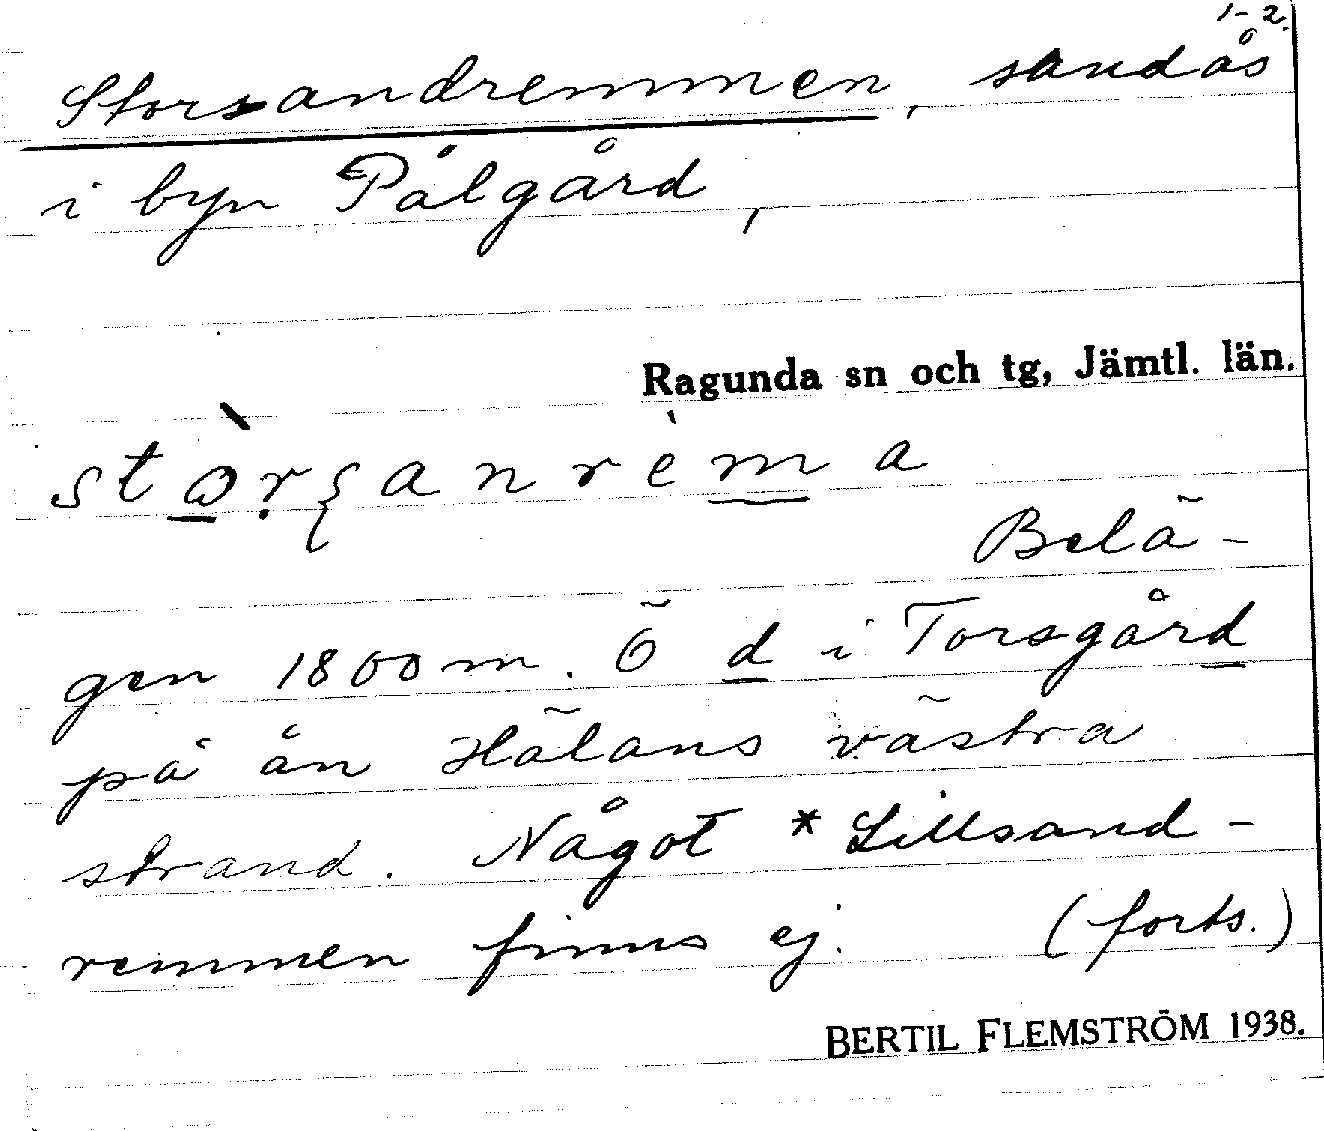 1-2.
Storsandremmen, sandås
i byn Pålgård,
Ragunda sn och tg, Jämtl. län.
stòrṣanrèma
Belä-
gen 1800 m. Ö d i Torsgård
på ån Hälans västra
strand. Något *Lillsand-
remmen finns ej. (forts.)
BERTIL FLEMSTRÖM 1938.